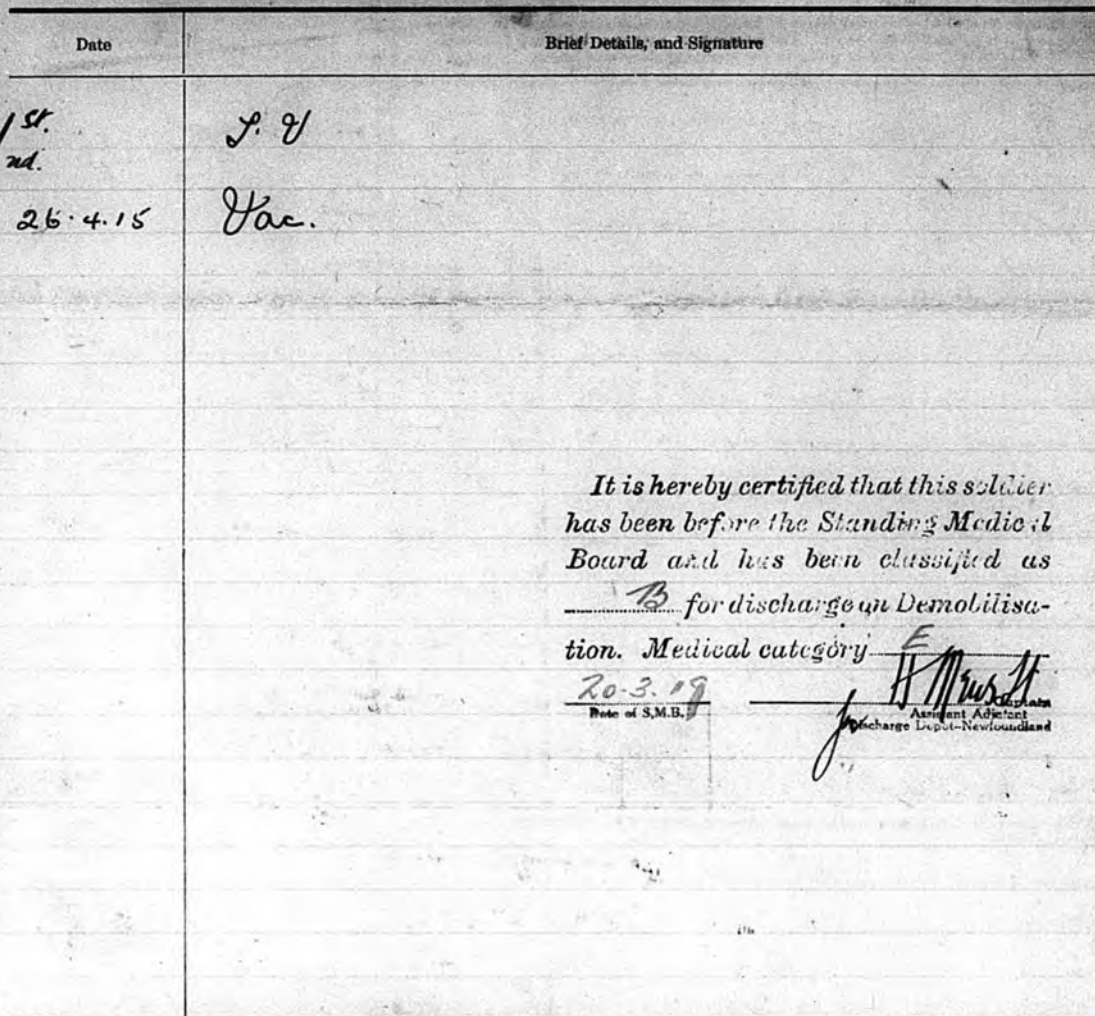 Date Brief Details, and Signature
1st.
nd.
26.4.15 Vac.
It is hereby certified that this soldier
has been before the Standing Medical
Board and has been classified as
B for discharge on Demobilisa-
tion. Medical category E
20-3-19
Date of S.M.B.
Captain
Assistant Adjutant
Discharge Depot-Newfoundland